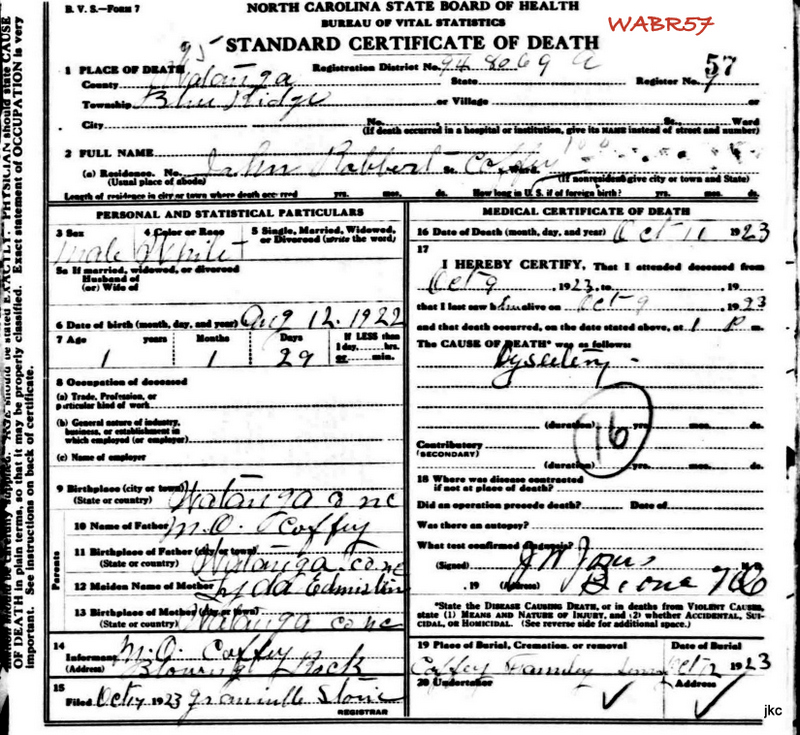 B. V. S.—Form 7
NORTH CAROLINA STATE BOARD OF HEALTH
BUREAU OF VITAL STATISTICS
WABR57
95 STANDARD CERTIFICATE OF DEATH
1 PLACE OF DEATH Registration District No. 94 8069 a 57
County Watauga State Register No. 7
Township Blue Ridge or Village or
City No. St. Ward
(If death occurred in a hospital or institution, give its NAME instead of street and number)
2 FULL NAME John Robbert Coffey
(a) Residence. No. St. Ward
(Usual place of abode) (If nonresident give city or town and State)
Length of residence in city or town where death occurred yrs. mos. ds. How long in U. S. if of foreign birth? yrs. mos. ds.
PERSONAL AND STATISTICAL PARTICULARS
3 Sex 4 Color or Race 5 Single, Married, Widowed, or Divorced (write the word)
Male White
5a If married, widowed, or divorced
Husband of
(or) Wife of
6 Date of birth (month, day, and year) Aug 12. 1922
7 Age years Months Days If LESS than
1 day hrs.
1 1 29 min.
8 Occupation of deceased
(a) Trade, Profession, or
particular kind of work
(b) General nature of industry,
business, or establishment in
which employed (or employer)
(c) Name of employer
9 Birthplace (city or town)
(State or country) Watauga co nc
10 Name of Father M.O. Coffey
11 Birthplace of Father (city or town)
(State or country) Watauga. co nc
12 Maiden Name of Mother Lyda Edmisten
13 Birthplace of Mother (city or town)
(State or country) Watauga co nc
Parents
14
Informant M.O. Coffey
(Address) Blowing Rock
15
Filed Oct 1923 Granville Stone
REGISTRAR
MEDICAL CERTIFICATE OF DEATH
16 Date of Death (month, day, and year) Oct 11 1923
17
I HEREBY CERTIFY, That I attended deceased from
Oct 9, 1923, to , 19
that I last saw h im alive on Oct 9, 1923
and that death occurred, on the date stated above, at 1 P m.
The CAUSE OF DEATH* was as follows:
Dysentery -
(duration) yrs. mos. ds.
16
Contributory
(SECONDARY)
(duration) yrs. mos. ds.
18 Where was disease contracted
if not at place of death?
Did an operation precede death? Date of
Was there an autopsy?
What test confirmed diagnosis?
(Signed) J W Jones
, 19 (Address) Boone N C
*State the DISEASE CAUSING DEATH, or in deaths from VIOLENT CAUSES,
state (1) MEANS AND NATURE OF INJURY, and (2) whether ACCIDENTAL, SUI-
CIDAL, OR HOMICIDAL. (See reverse side for additional space.)
19 Place of Burial, Cremation, or removal Date of Burial
Coffey Family Oct 12 1923
20 Undertaker Address
jkc
OF DEATH in plain terms, so that it may be properly classified. Exact statement of OCCUPATION is very
important. See instructions on back of certificate.